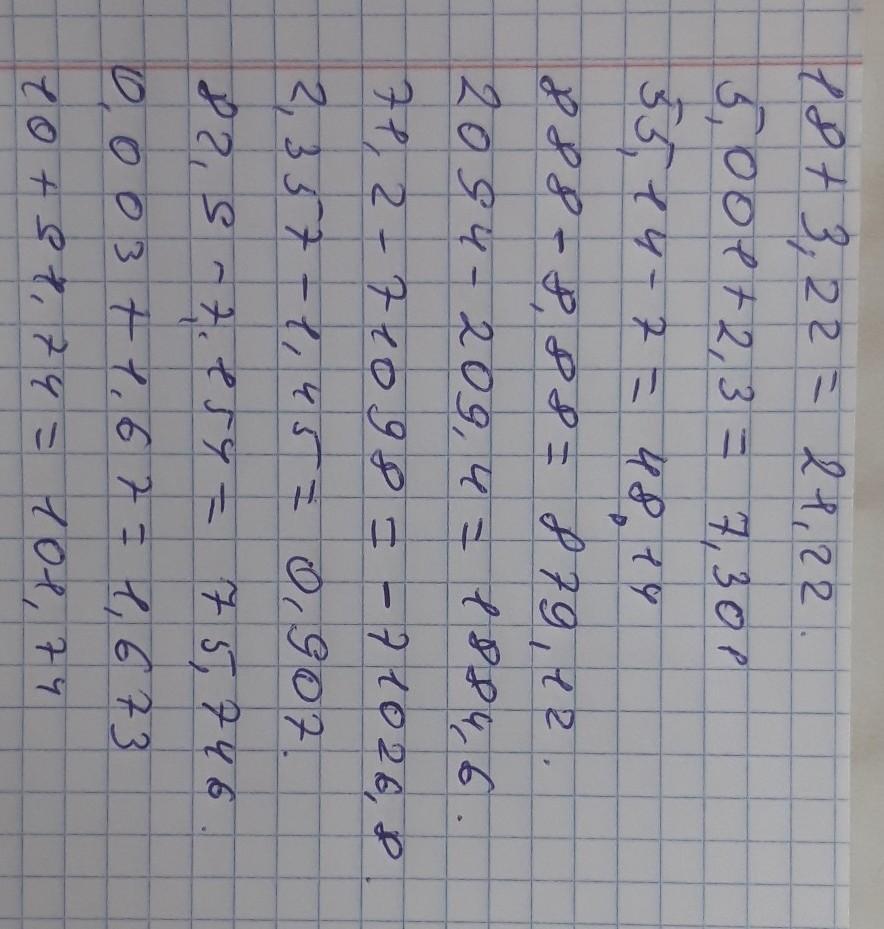 18+3,22 = 21,22.
5,001+2,3 = 7,301
55,14-7 = 48,14
888-8,88 = 879,12.
2094-209,4 = 1884,6.
71,2-71098 = -71026,8.
2,357-1,45 = 0,907.
82,9-7,154 = 75,746.
0,003+1,67 = 1,673
10+91,74 = 101,74